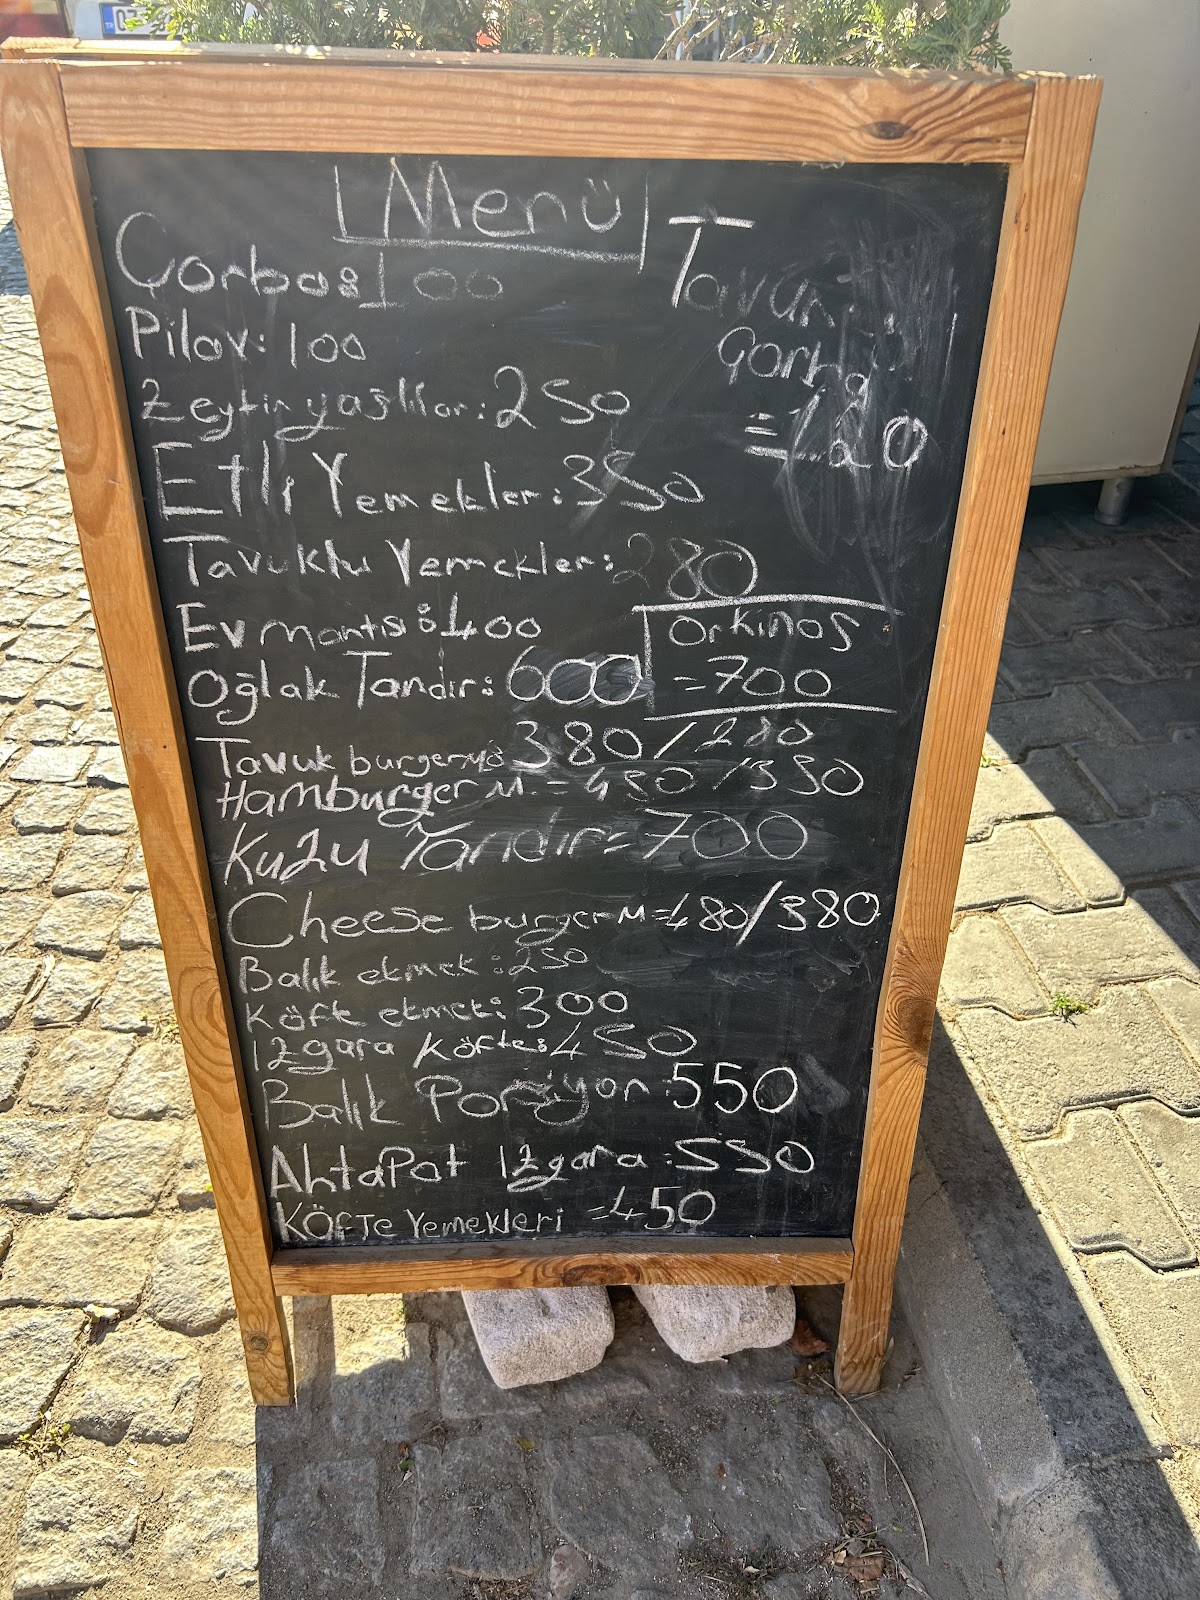 Menü
Çorba: 100
Pilav: 100
Zeytinyağlılar: 250
Etli Yemekler: 350
Tavuklu Yemekler: 280
Ev mantısı: 400
Oğlak Tandır: 600
Tavuk burger M: 380/280
Hamburger M. = 450/350
Kuzu Tandır = 700
Cheese burger M = 480/380
Balık ekmek: 250
Köfte ekmek: 300
Izgara Köfte: 450
Balık Porsiyon: 550
AhtaPot Izgara: 550
KÖFTE Yemekleri = 450
Tavuk
Çorba
= 120
Orkinos
= 700